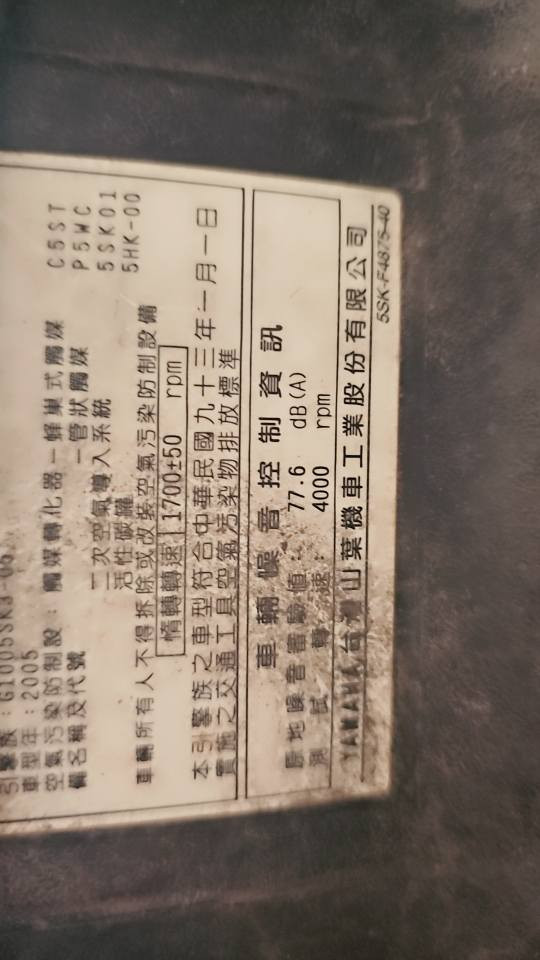 引擎族：G1005SK3-06
車型年：2005
空氣污染防制設：觸媒轉化器－蜂巢式觸媒 C5ST
備名稱及代號 －管狀觸媒 P5WC
二次空氣導入系統 5SK01
活性碳罐 5HK-00
車輛所有人不得拆除或改裝空氣污染防制設備
惰轉轉速 1700±50 rpm
本引擎族之車型符合中華民國九十三年一月一日
實施之交通工具空氣污染物排放標準
車輛噪音控制資訊
原地噪音審驗值：77.6 dB(A)
測試轉速：4000 rpm
YAMAHA 台灣山葉機車工業股份有限公司
5SK-F4875-40